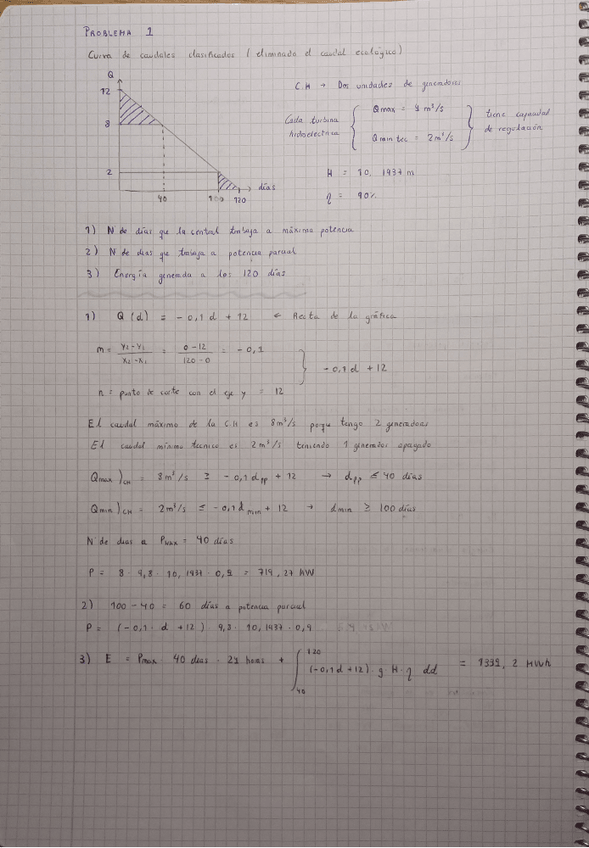 PROBLEMA 1
Curva de caudales clasificados (eliminado el caudal ecológico)
Q
12
8
2
40
100
120
días
C.H → Dos unidades de generadores
Cada turbina hidroeléctrica
Qmax = 4 m³/s
Qmin tec = 2 m³/s
tiene capacidad de regulación
H = 10,1937 m
η = 90%
1) N de días que la central trabaja a máxima potencia
2) N de dias que trabaja a potencia parcial
3) Energía generada a los 120 días
1) Q (d) = -0,1 d + 12 ← Recta de la gráfica
m = y₂-y₁ / x₂-x₁ = 0-12 / 120-0 = -0,1
-0,1 d + 12
n = punto de corte con el eje y = 12
El caudal máximo de la C.H es 8 m³/s porque tengo 2 generadores
El caudal mínimo tecnico es 2 m³/s teniendo 1 generador apagado
Qmax )CH = 8 m³/s ≥ -0,1 dpp + 12 → dpp ≤ 40 días
Qmin )CH = 2 m³/s ≤ -0,1 d min + 12 → dmin ≥ 100 días
N de dias a PMAX = 40 días
P = 8 · 9,8 · 10,1937 · 0,9 = 719,27 kW
2) 100 - 40 = 60 días a potencia parcial
P = (-0,1 · d + 12) 9,8 · 10,1937 · 0,9
3) E = Pmax · 40 dias · 24 horas + ∫ 120 40 (-0,1 d + 12) · g · H · η dd = 1339,2 MWh